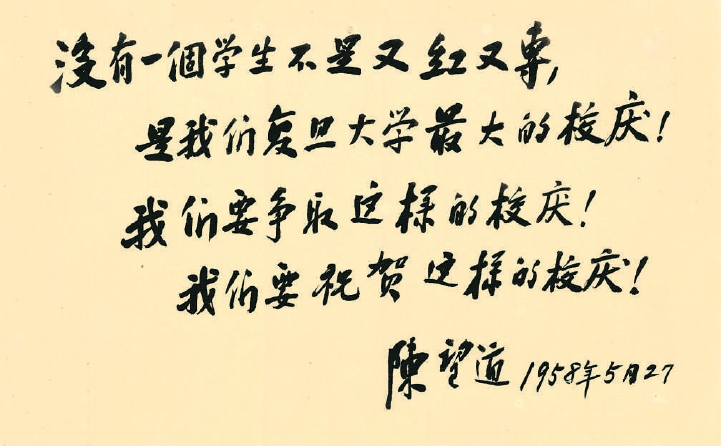 没有一個学生不是又红又専,
是我们复旦大学最大的校庆!
我们要争取这样的校庆!
我们要祝贺这样的校庆!
陳望道 1958年5月27